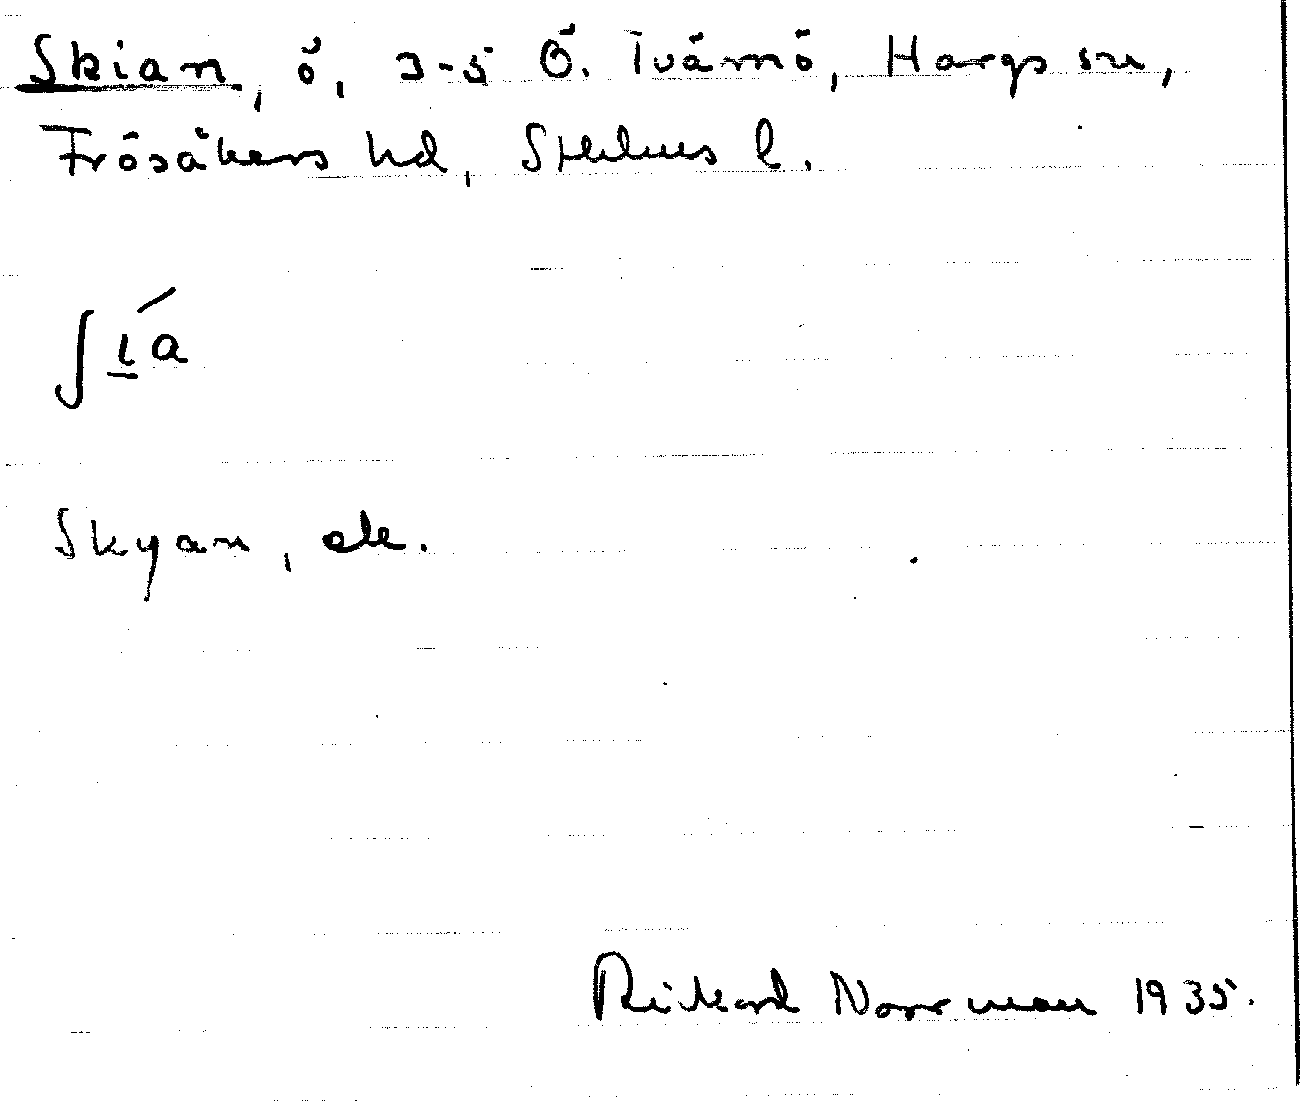 Skian, ö, 3-5 Ö. Tvärnö, Hargs sn,
Frösåkers hd, Sthlms l.
ʃɩ̠́a
Skyan, ek.
Rickard Norrman 1935.